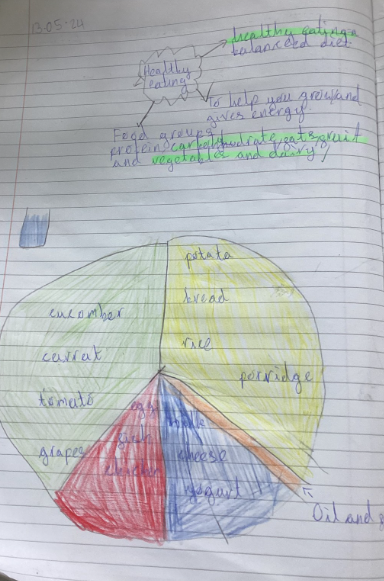 13.05.24
healthy eating =
balanceed diet.
Healthy
eating
To help you grow and
gives energy.
Food groups
protein, carbohydrate, fats, fruit
and vegetables and dairy
potata
bread
rice
porridge
cucumber
carrat
tomato
grapes
eggs
fish
chicken
milk
cheese
yogurt
Oil and